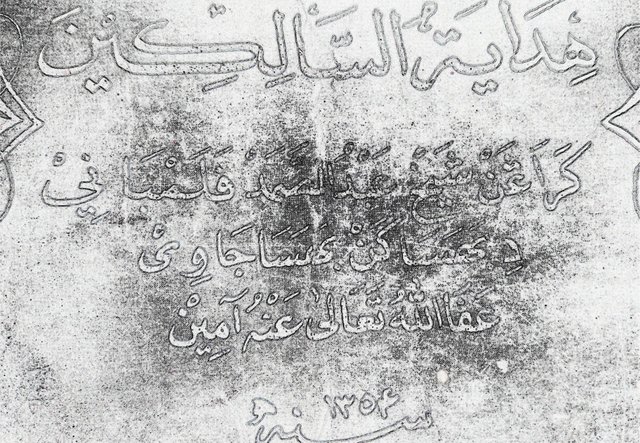 هِدَايَةُ السَّالِكِيْنَ
كَرَاڠَنْ شَيْخْ عَبْدُ الصَّمَدْ فَلَمْبَانِيْ
دِبَهَسَاكَنْ بَهَسَا جَاوِيْ
عَفَا اللّٰهُ تَعَالَىٰ عَنْهُ آمِيْنْ
سنة ١٣٥٤